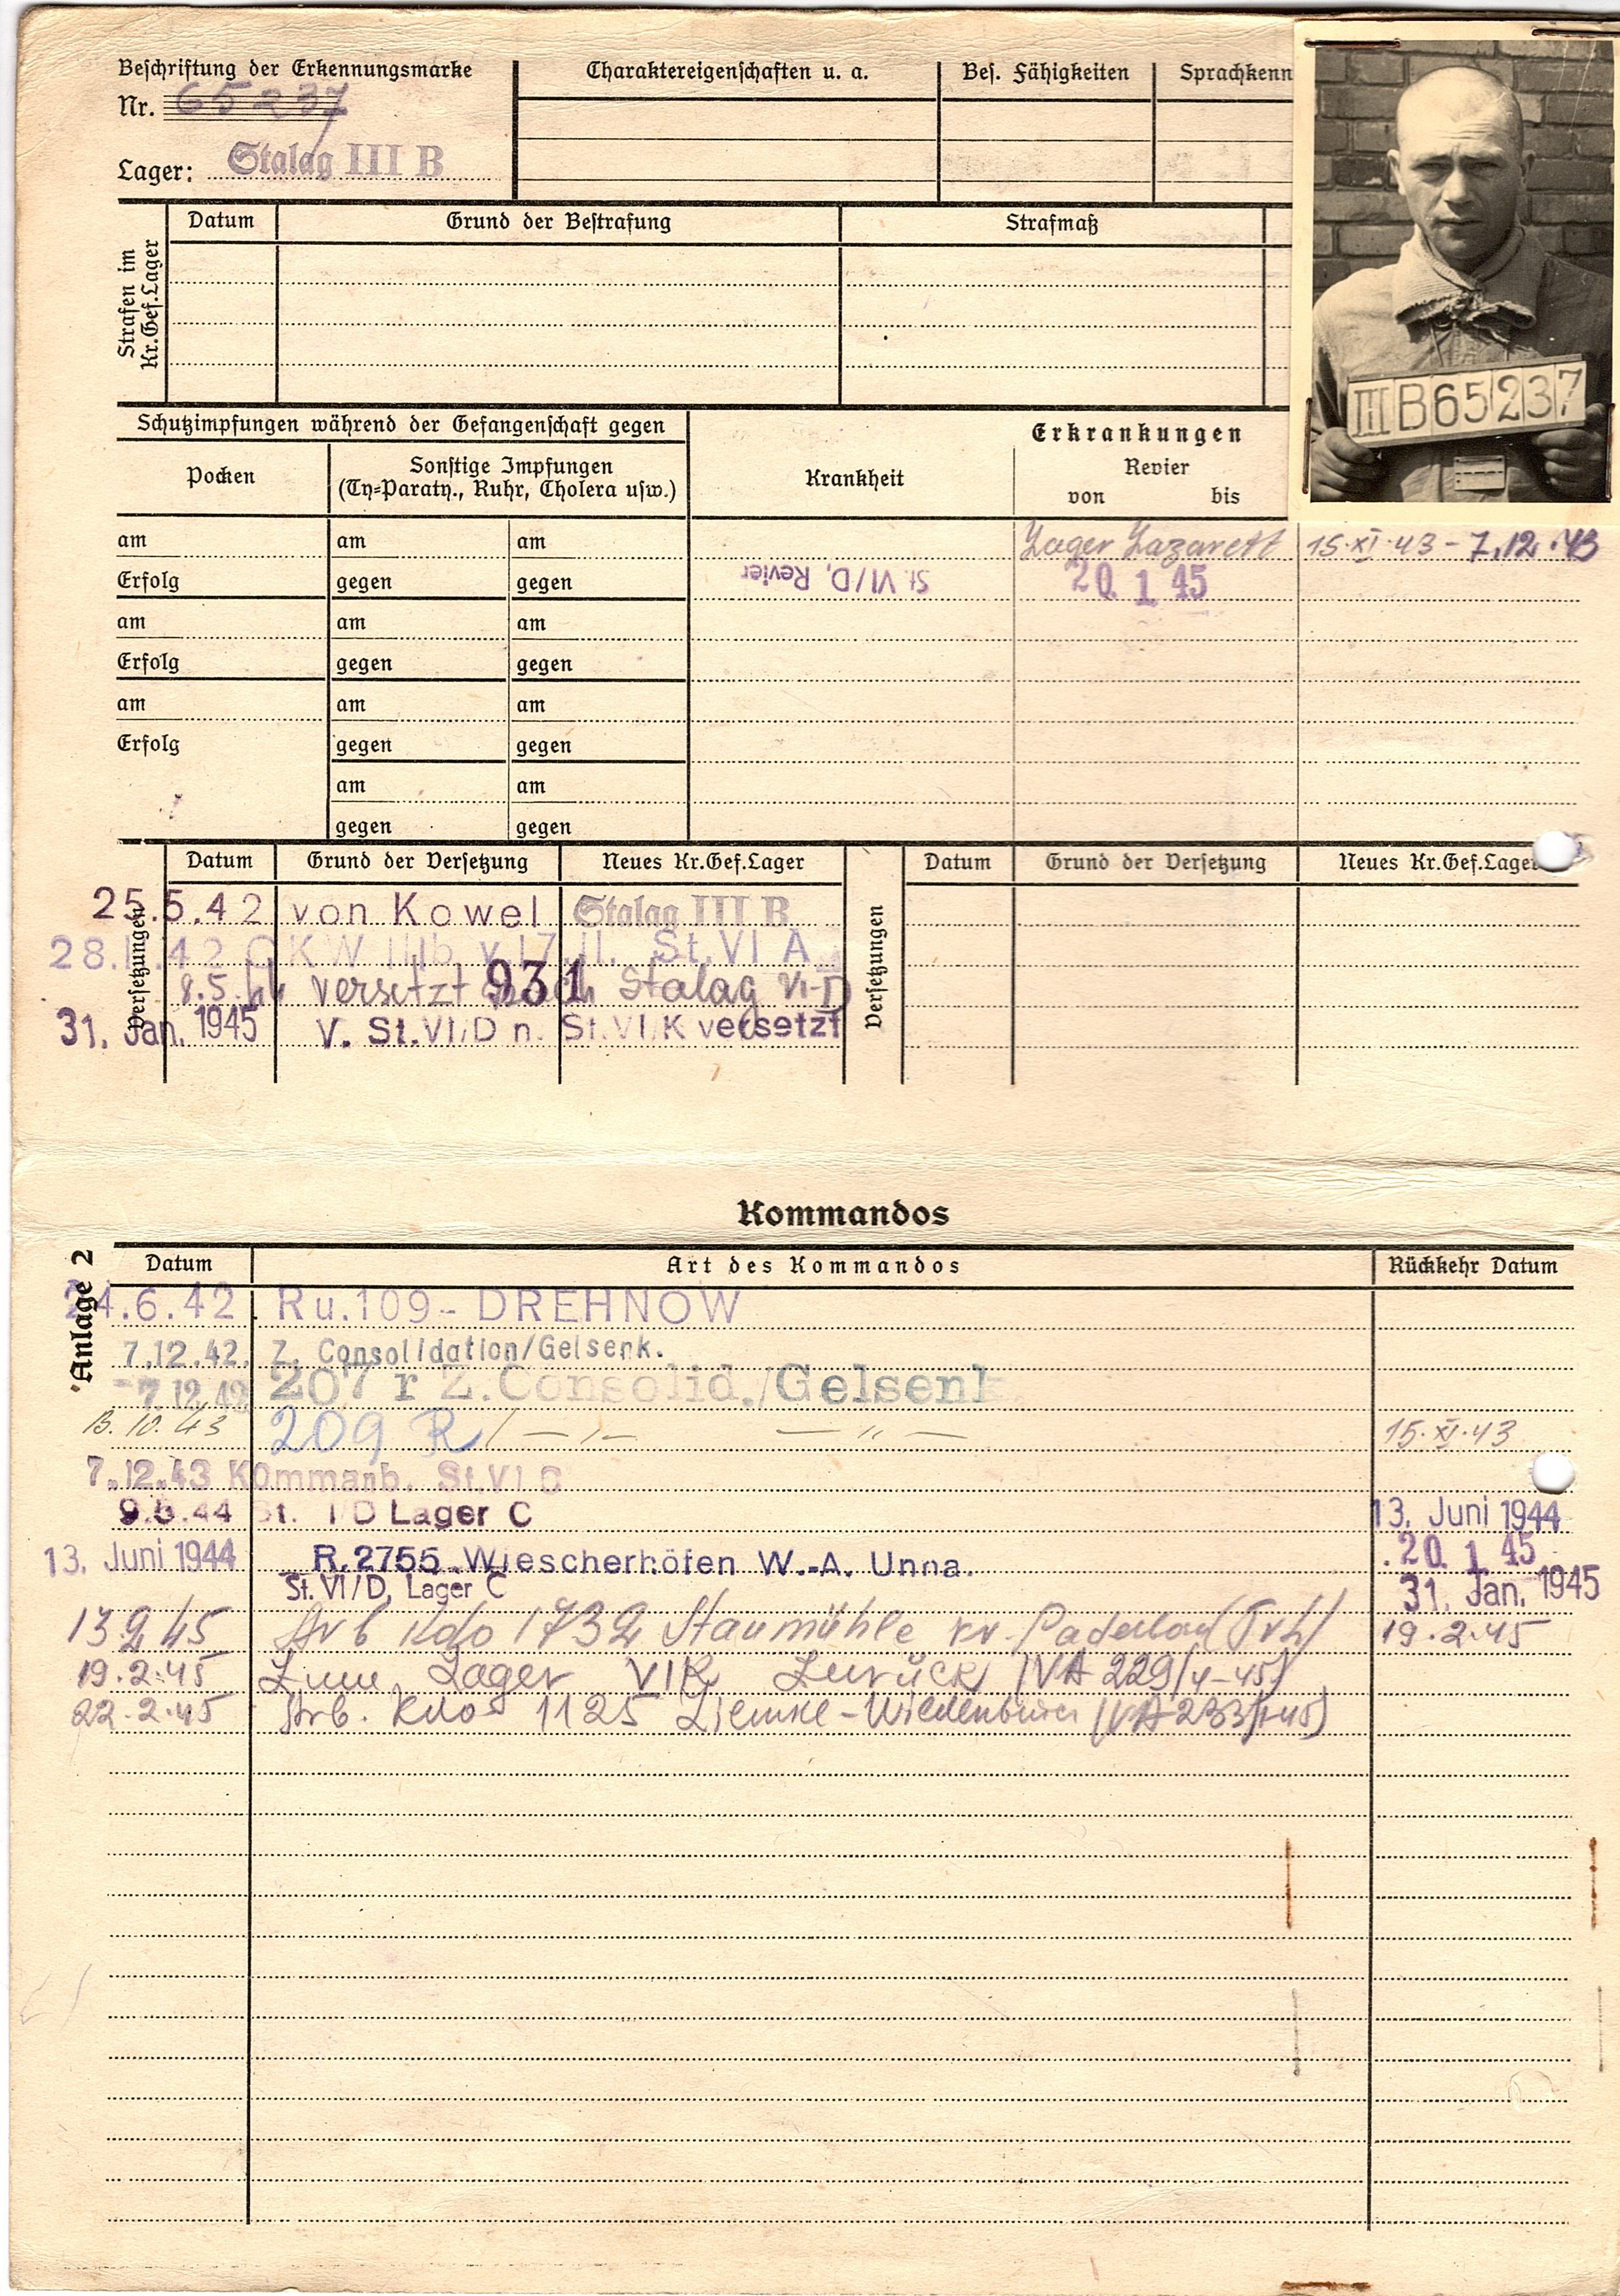 Beschriftung der Erkennungsmarke
Nr. 65237
Lager: Stalag III B
Charaktereigenschaften u. a.
Bes. Fähigkeiten
Sprachkenn
III B 65237
Strafen im Kr.Gef.Lager
Datum
Grund der Bestrafung
Strafmaß
Schutzimpfungen während der Gefangenschaft gegen
Pocken
Sonstige Impfungen
(Ty=Paraty., Ruhr, Cholera usw.)
Krankheit
Erkrankungen
Revier
von bis
am am am
Lager Lazarett 15.XI.43 - 7.12.43
Erfolg gegen gegen
St. VI/D, Revier 20. 1. 45
am am am
Erfolg gegen gegen
am am am
Erfolg gegen gegen
am am
gegen gegen
Versetzungen
Datum Grund der Versetzung Neues Kr.Gef.Lager
25.5.42 von Kowel Stalag III B
28. 42 OKW v. 17. 11. St. VI A
8.5.44 versetzt nach Stalag VI-D
931
31. Jan. 1945 v. St. VI/D n. St. VI/K versetzt
Versetzungen
Datum Grund der Versetzung Neues Kr.Gef.Lager
Kommandos
Anlage 2
Datum Art des Kommandos Rückkehr Datum
24.6.42. Ru.109 - DREHNOW
7.12.42. Z. Consolidation/Gelsenk.
7.12.42 207 r Z. Consolid./Gelsenk
13.10.43 209 R/ — " — — " — 15.XI.43
7.12.43 Kommanb. St. VI
9.5.44 St. /D Lager C 13. Juni 1944
13. Juni 1944 R. 2755 Wiescherhöfen W.-A. Unna. 20. 1. 45
St. VI/D, Lager C 31. Jan. 1945
13.2.45 Arb Kdo 1732 Staumühle Kr. Paderborn 19.2.45
19.2.45 Zum Lager VIK zurück (VA 229/4-45)
22.2.45 Arb. Kdo 1125 - Wiedenbrück (VA 233/45)